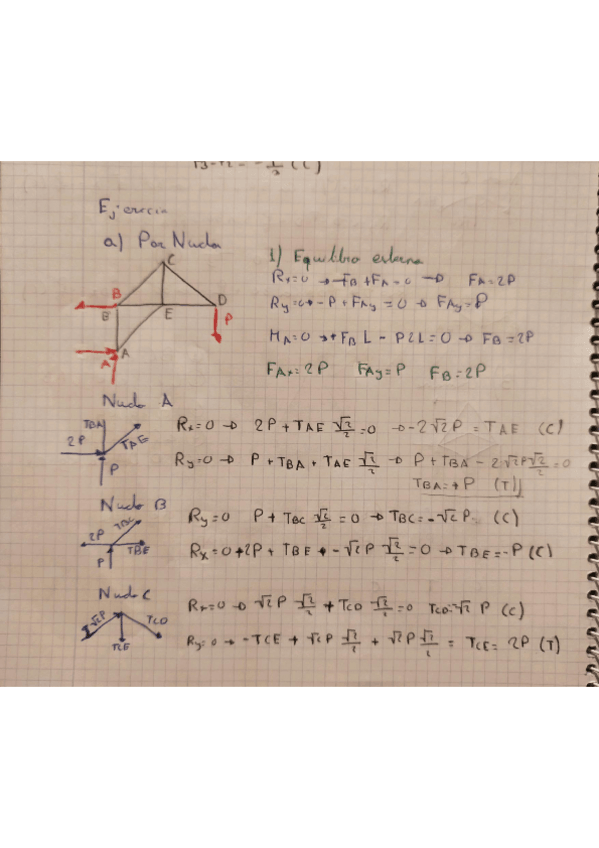 Ejercicio
a) Por Nudos
C
B
B
E
D
P
A
A
1) Equilibrio externo
Rx=0 → -FB+FA=0 → FA=2P
Ry=0 → -P+FAy=0 → FAy=P
MA=0 → +FB L - P2L=0 → FB=2P
FAx=2P FAy=P FB=2P
Nudo A
TBA
2P
TAE
P
Rx=0 → 2P+TAE √2/2=0 → -2√2P=TAE (C)
Ry=0 → P+TBA+TAE √2/2 → P+TBA-2√2P√2/2=0
TBA=+P (T)
Nudo B
2P TBC
TBE
P
Ry=0 P+TBC √2/2=0 → TBC=-√2P (C)
Rx=0 → 2P+TBE+-√2P √2/2=0 → TBE=-P (C)
Nudo C
√2P
TCD
TCE
Rx=0 → √2P √2/2+TCD √2/2=0 TCD=-√2 P (C)
Ry=0 → -TCE+√2P √2/2+√2P √2/2 = TCE=2P (T)